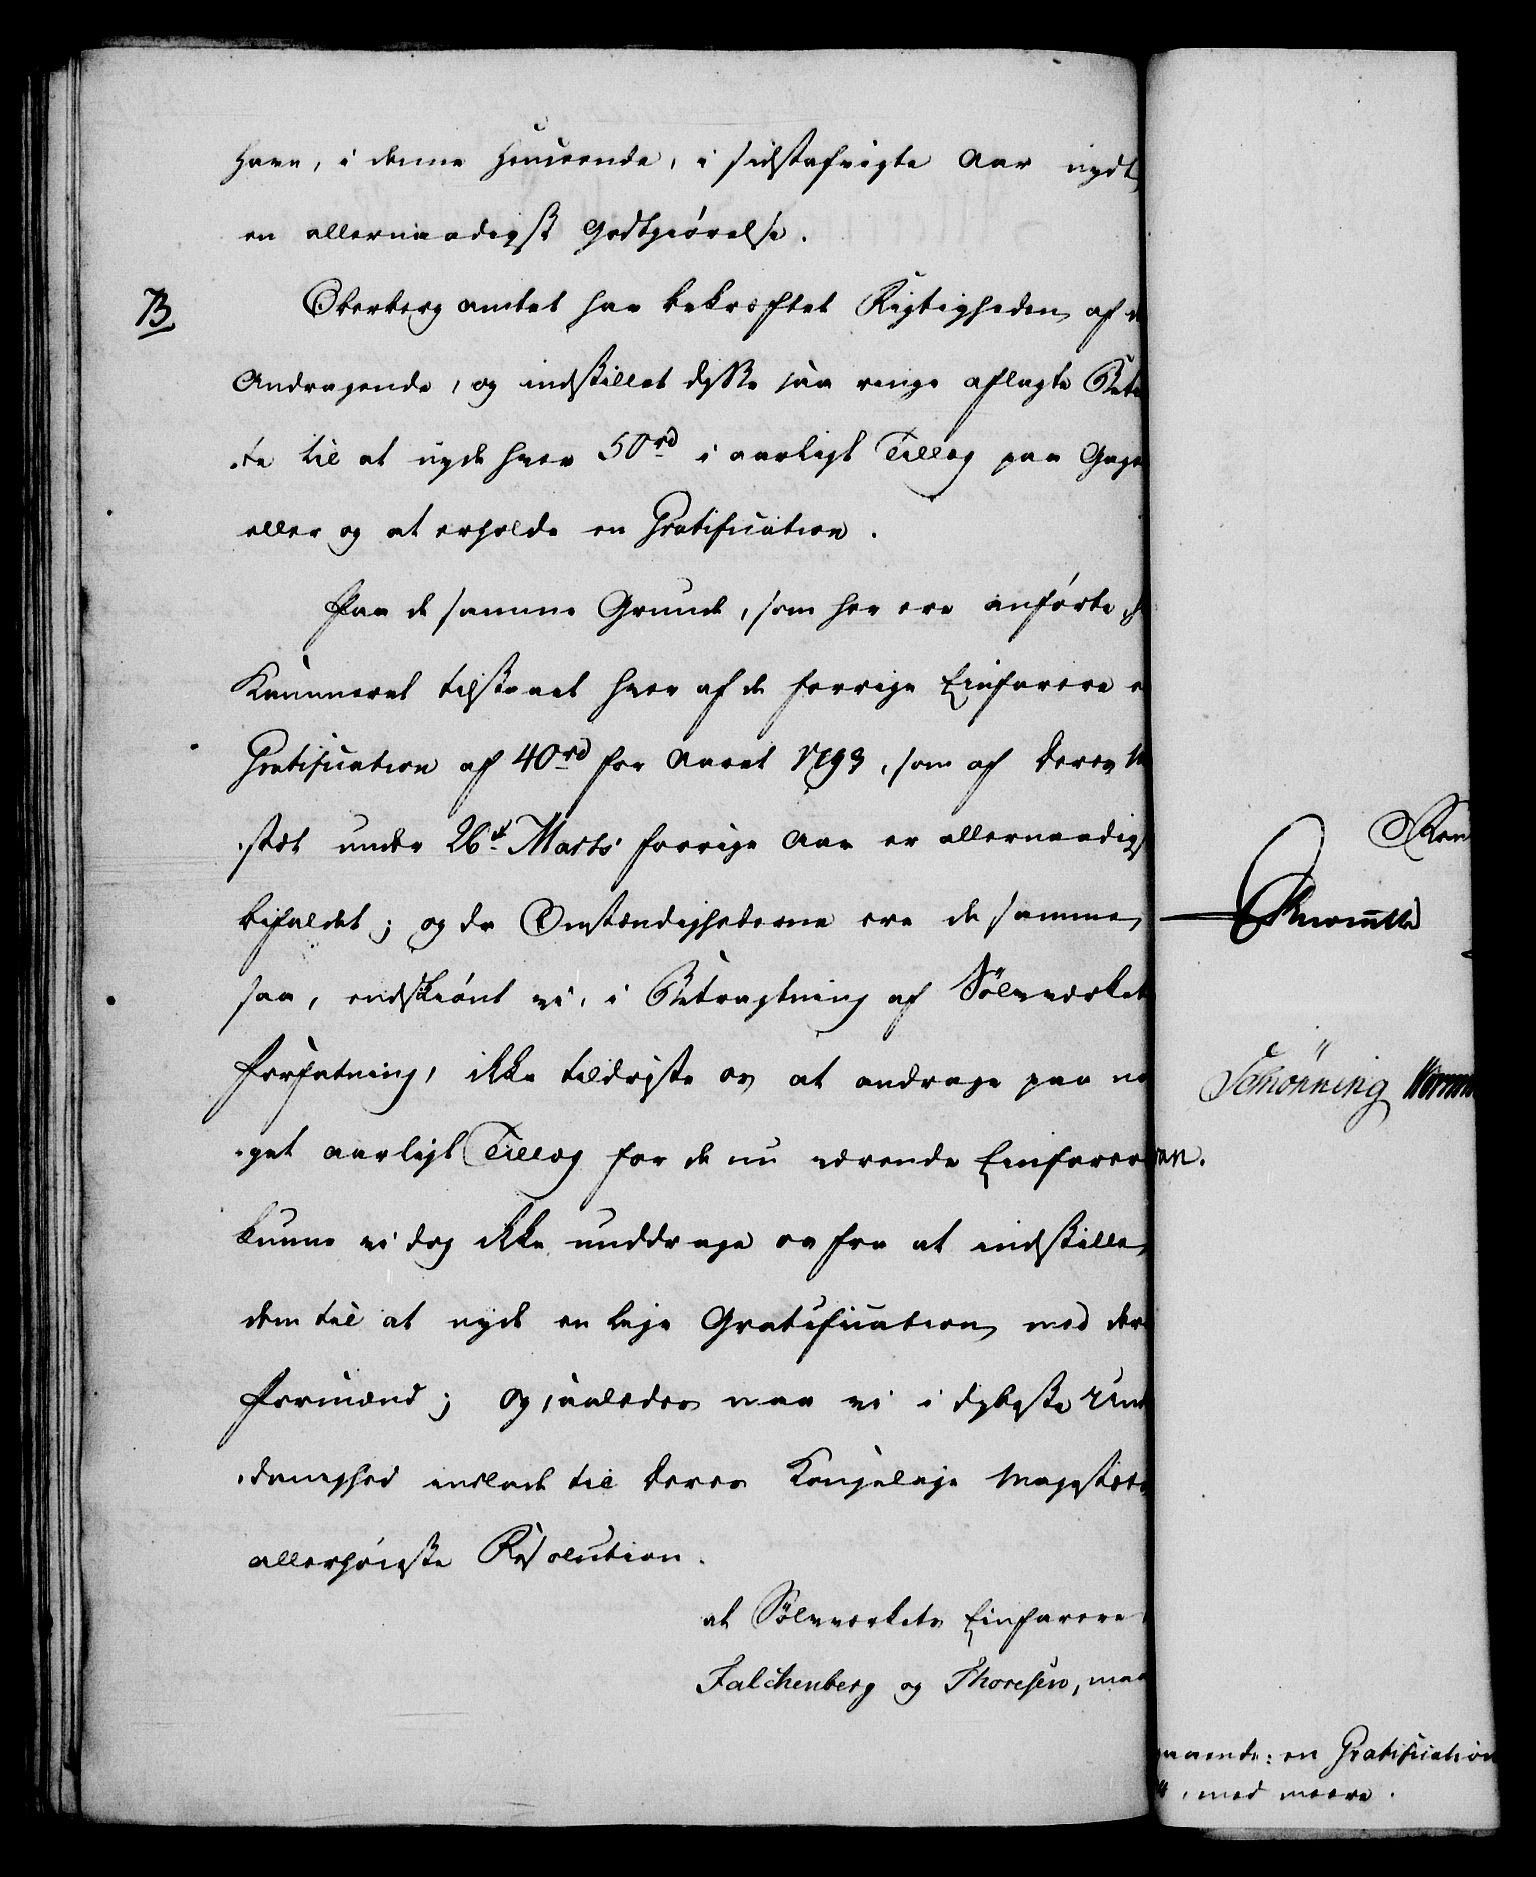 have, i denne Henseende, i sidstafvigte Aar nydt
en allernaadigst Godtgiörelse.
B
Oberberg amtet har bekræftet Rigtigheden af d
Andragende, og indstillet disse saa ringe aflagte Betie
te til at nyde hver 50 rd i aarligt Tillæg paa Gage
eller og at erholde en Gratification.
Paa de samme Grunde, som her ere anförte, h
Kammeret tilstaaet hver af de forrige Einfarere e
Gratification af 40 rd for Aaret 1793, som af Deres M
stæt under 26de Marts forrige Aar er allernaadigst
bifaldet; og da Omstændighederne ere de samme,
saa, endskiönt vi, i Betragtning af Sölvværkets
Forfatning, ikke tildriste os at andrage paa no
get aarligt Tillæg for de nu værende Einfarere
kunne vi dog ikke unddrage os fra at indstille
dem til at nyde en lige Gratification med dere
Formænd; og saaledes maa vi i dybeste Und
danighed indlade til Deres Kongelige Majestæts
allerhöieste Resolution.
at Sölvværkets Einfarere
Falchenberg og Thoresen, maa
Schönning Worm
en Gratification
med meere.